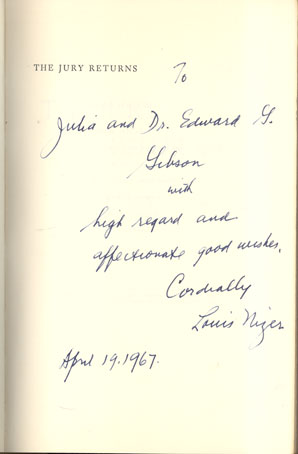 THE JURY RETURNS
To
Julia and Dr. Edward G.
Gibson
with
high regard and
affectionate good wishes.
Cordially
Louis Nizer
April 19.1967.